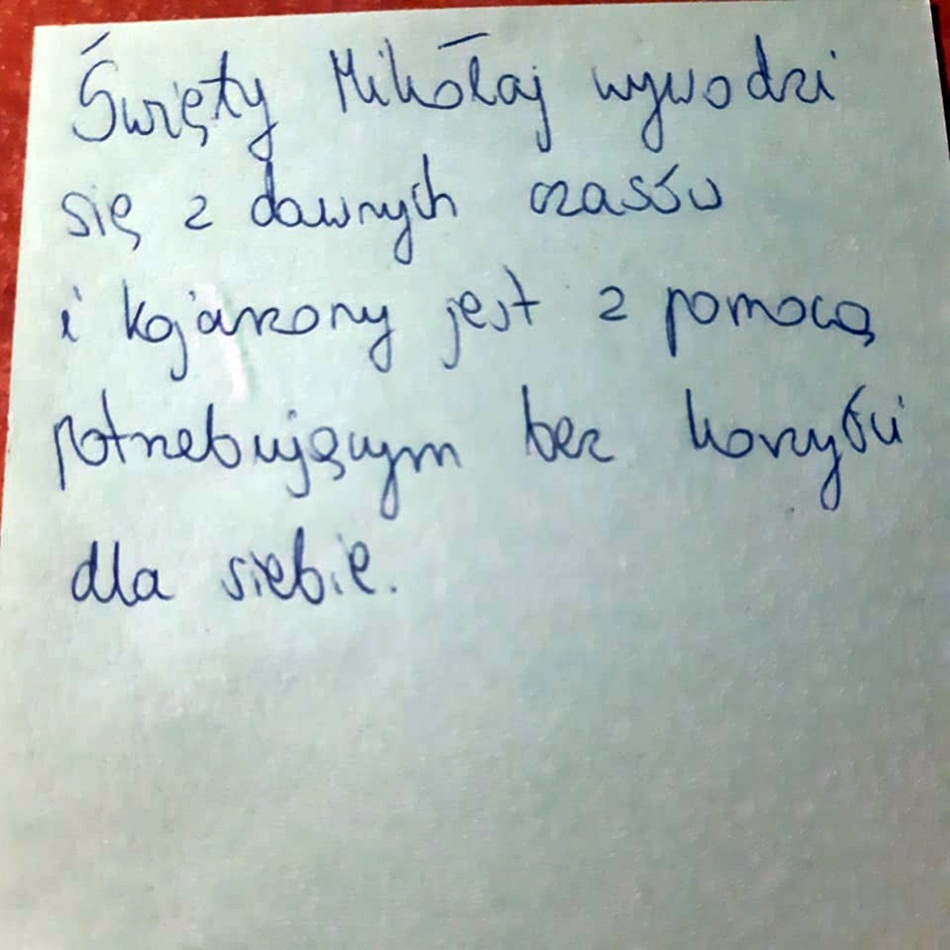 Święty Mikołaj wywodzi
się z dawnych czasów
i kojarzony jest z pomocą
potrzebującym bez korzyści
dla siebie.